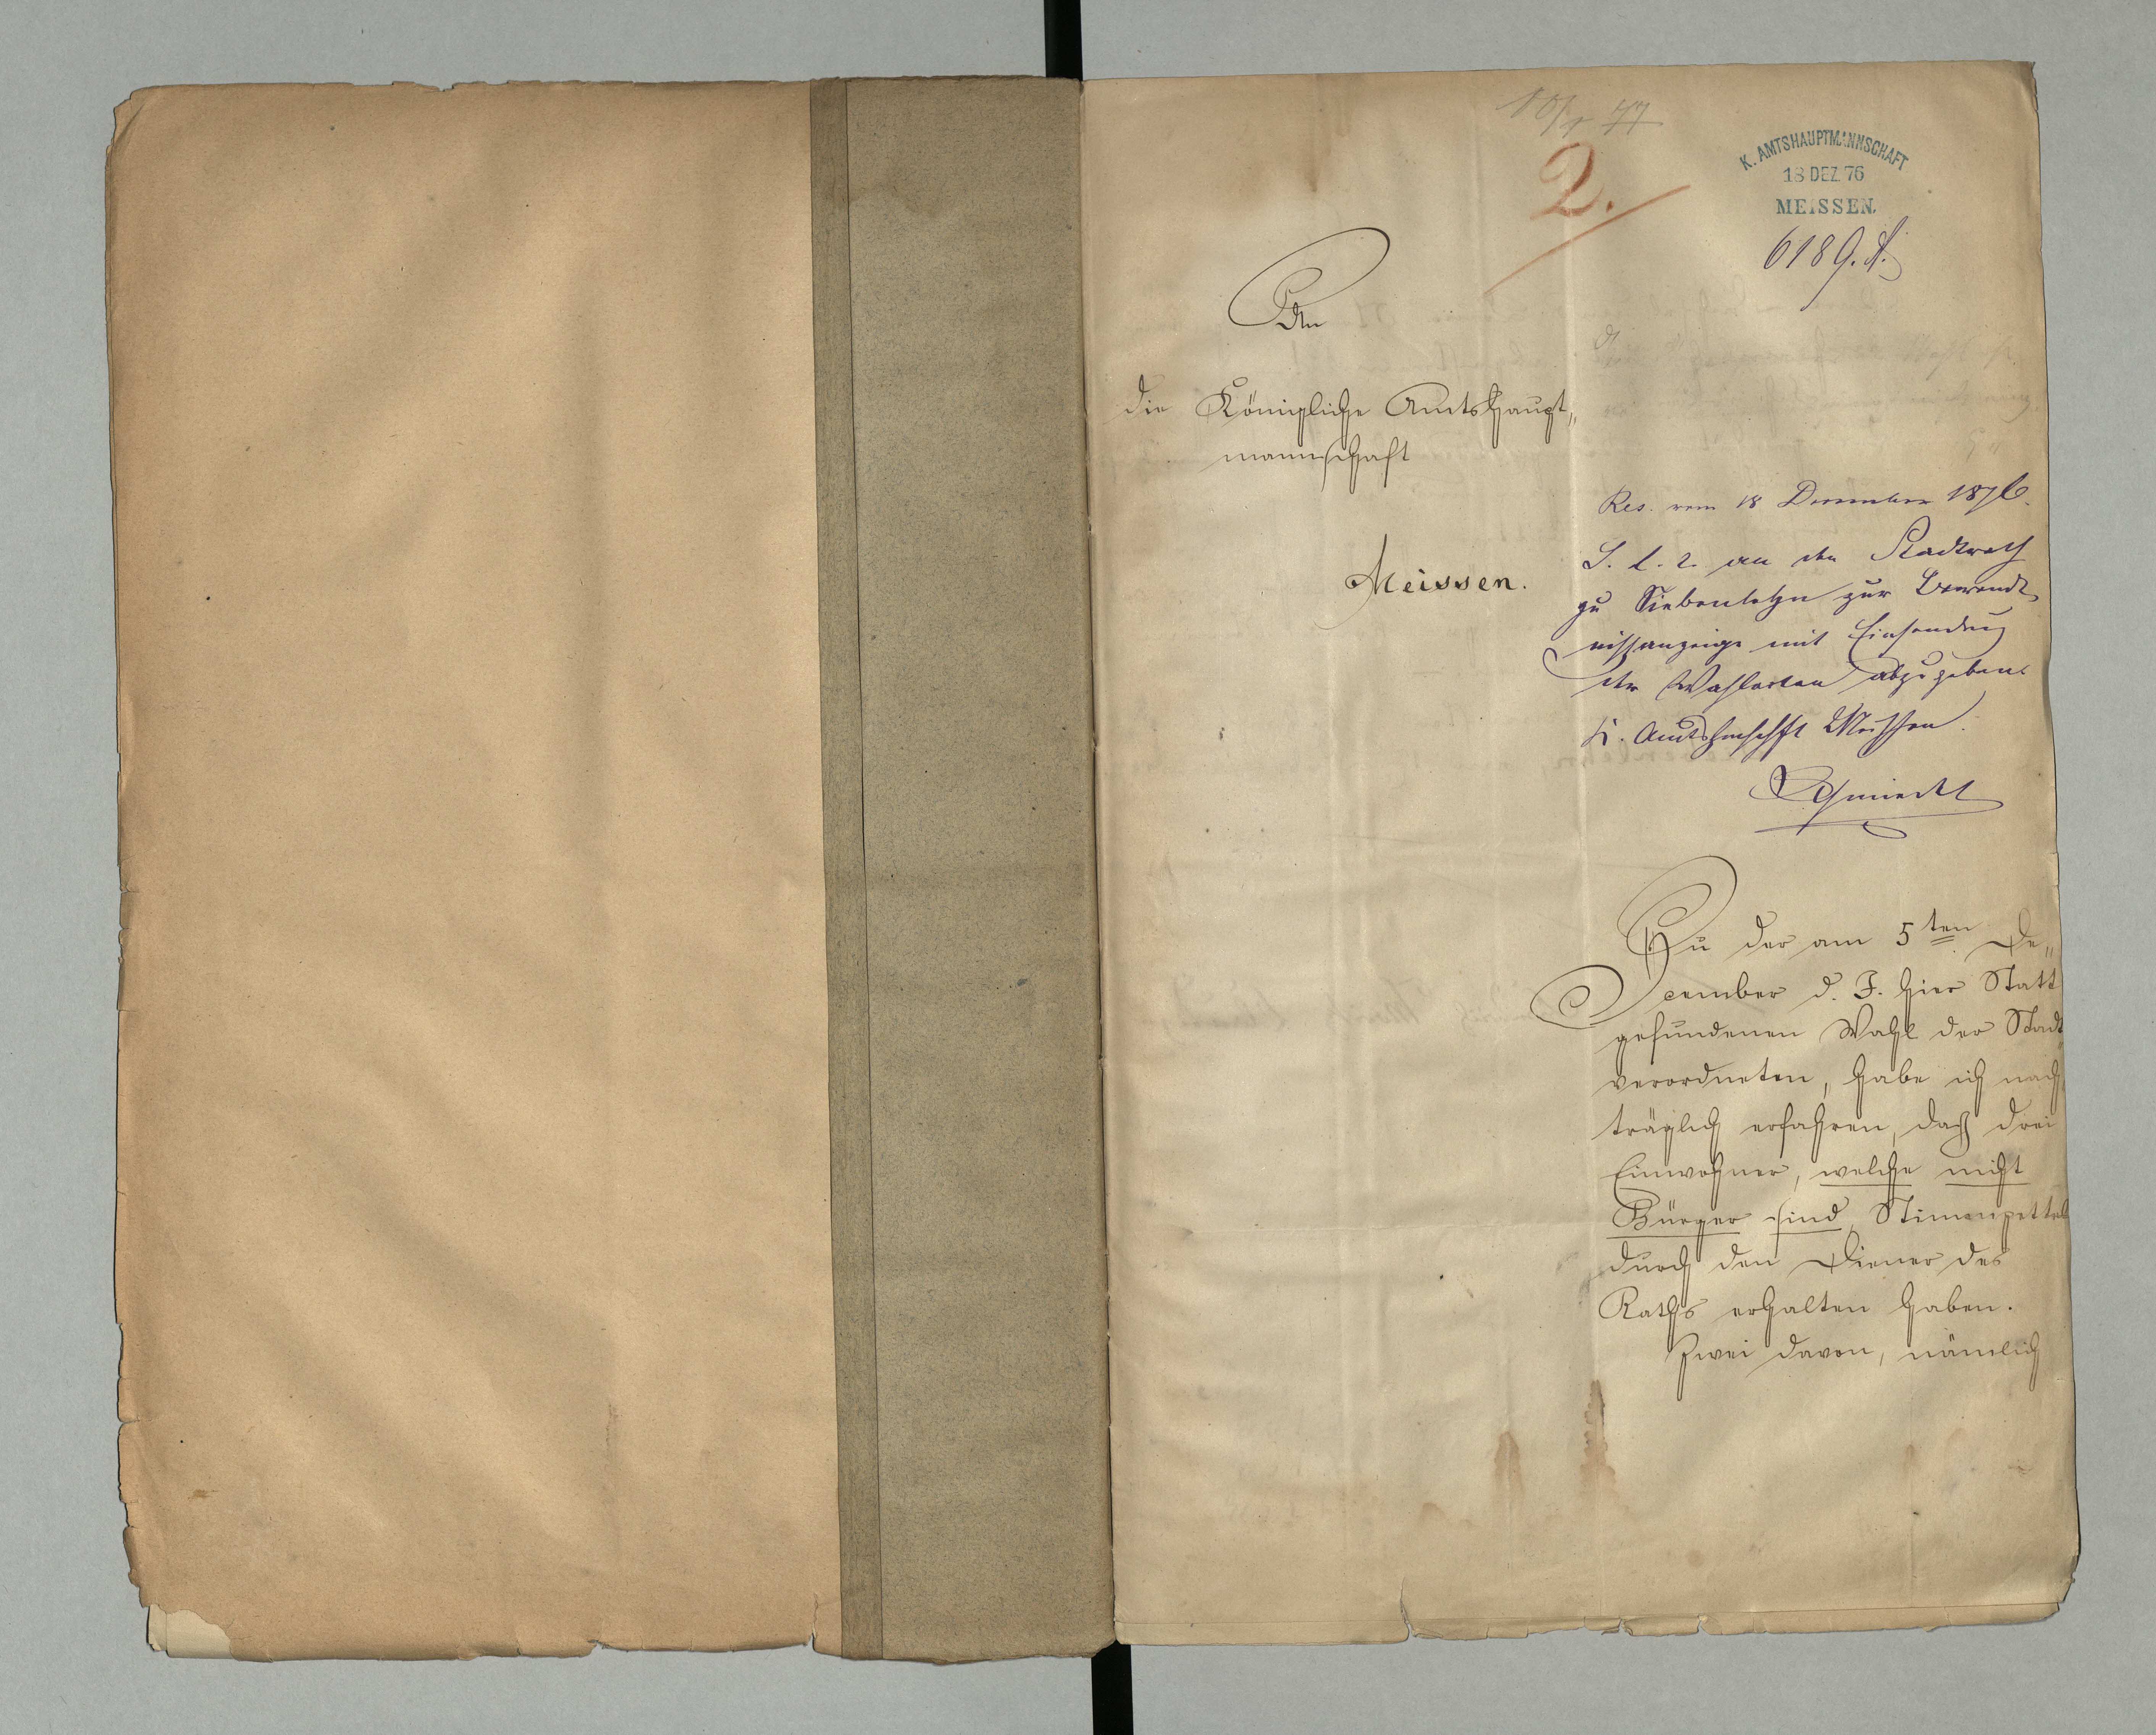 10/1 77
2.
K. AMTSHAUPTMANNSCHAFT
18 DEZ. 76
MEISSEN.
6189. A.
An
die Königliche Amtshaupt„
mannschaft
Meissen.
Res. vom 18 December 1876.
S. l. r. an den Stadtrath
zu Siebenlehn zur Bewandt„
nißanzeige mit Einsendung
der Wahlacten abzugeben.
K. Amtshmschft Meißen.
Schmiedel
Zu der am 5ten De„
cember d. J. hier Statt
gefundenen Wahl der Stadt„
verordneten, habe ich nach
träglich erfahren, daß drei
Einwohner, welche nicht
Bürger sind, Stimmzettel
durch den Diener des
Raths erhalten haben.
Zwei davon, nämlich